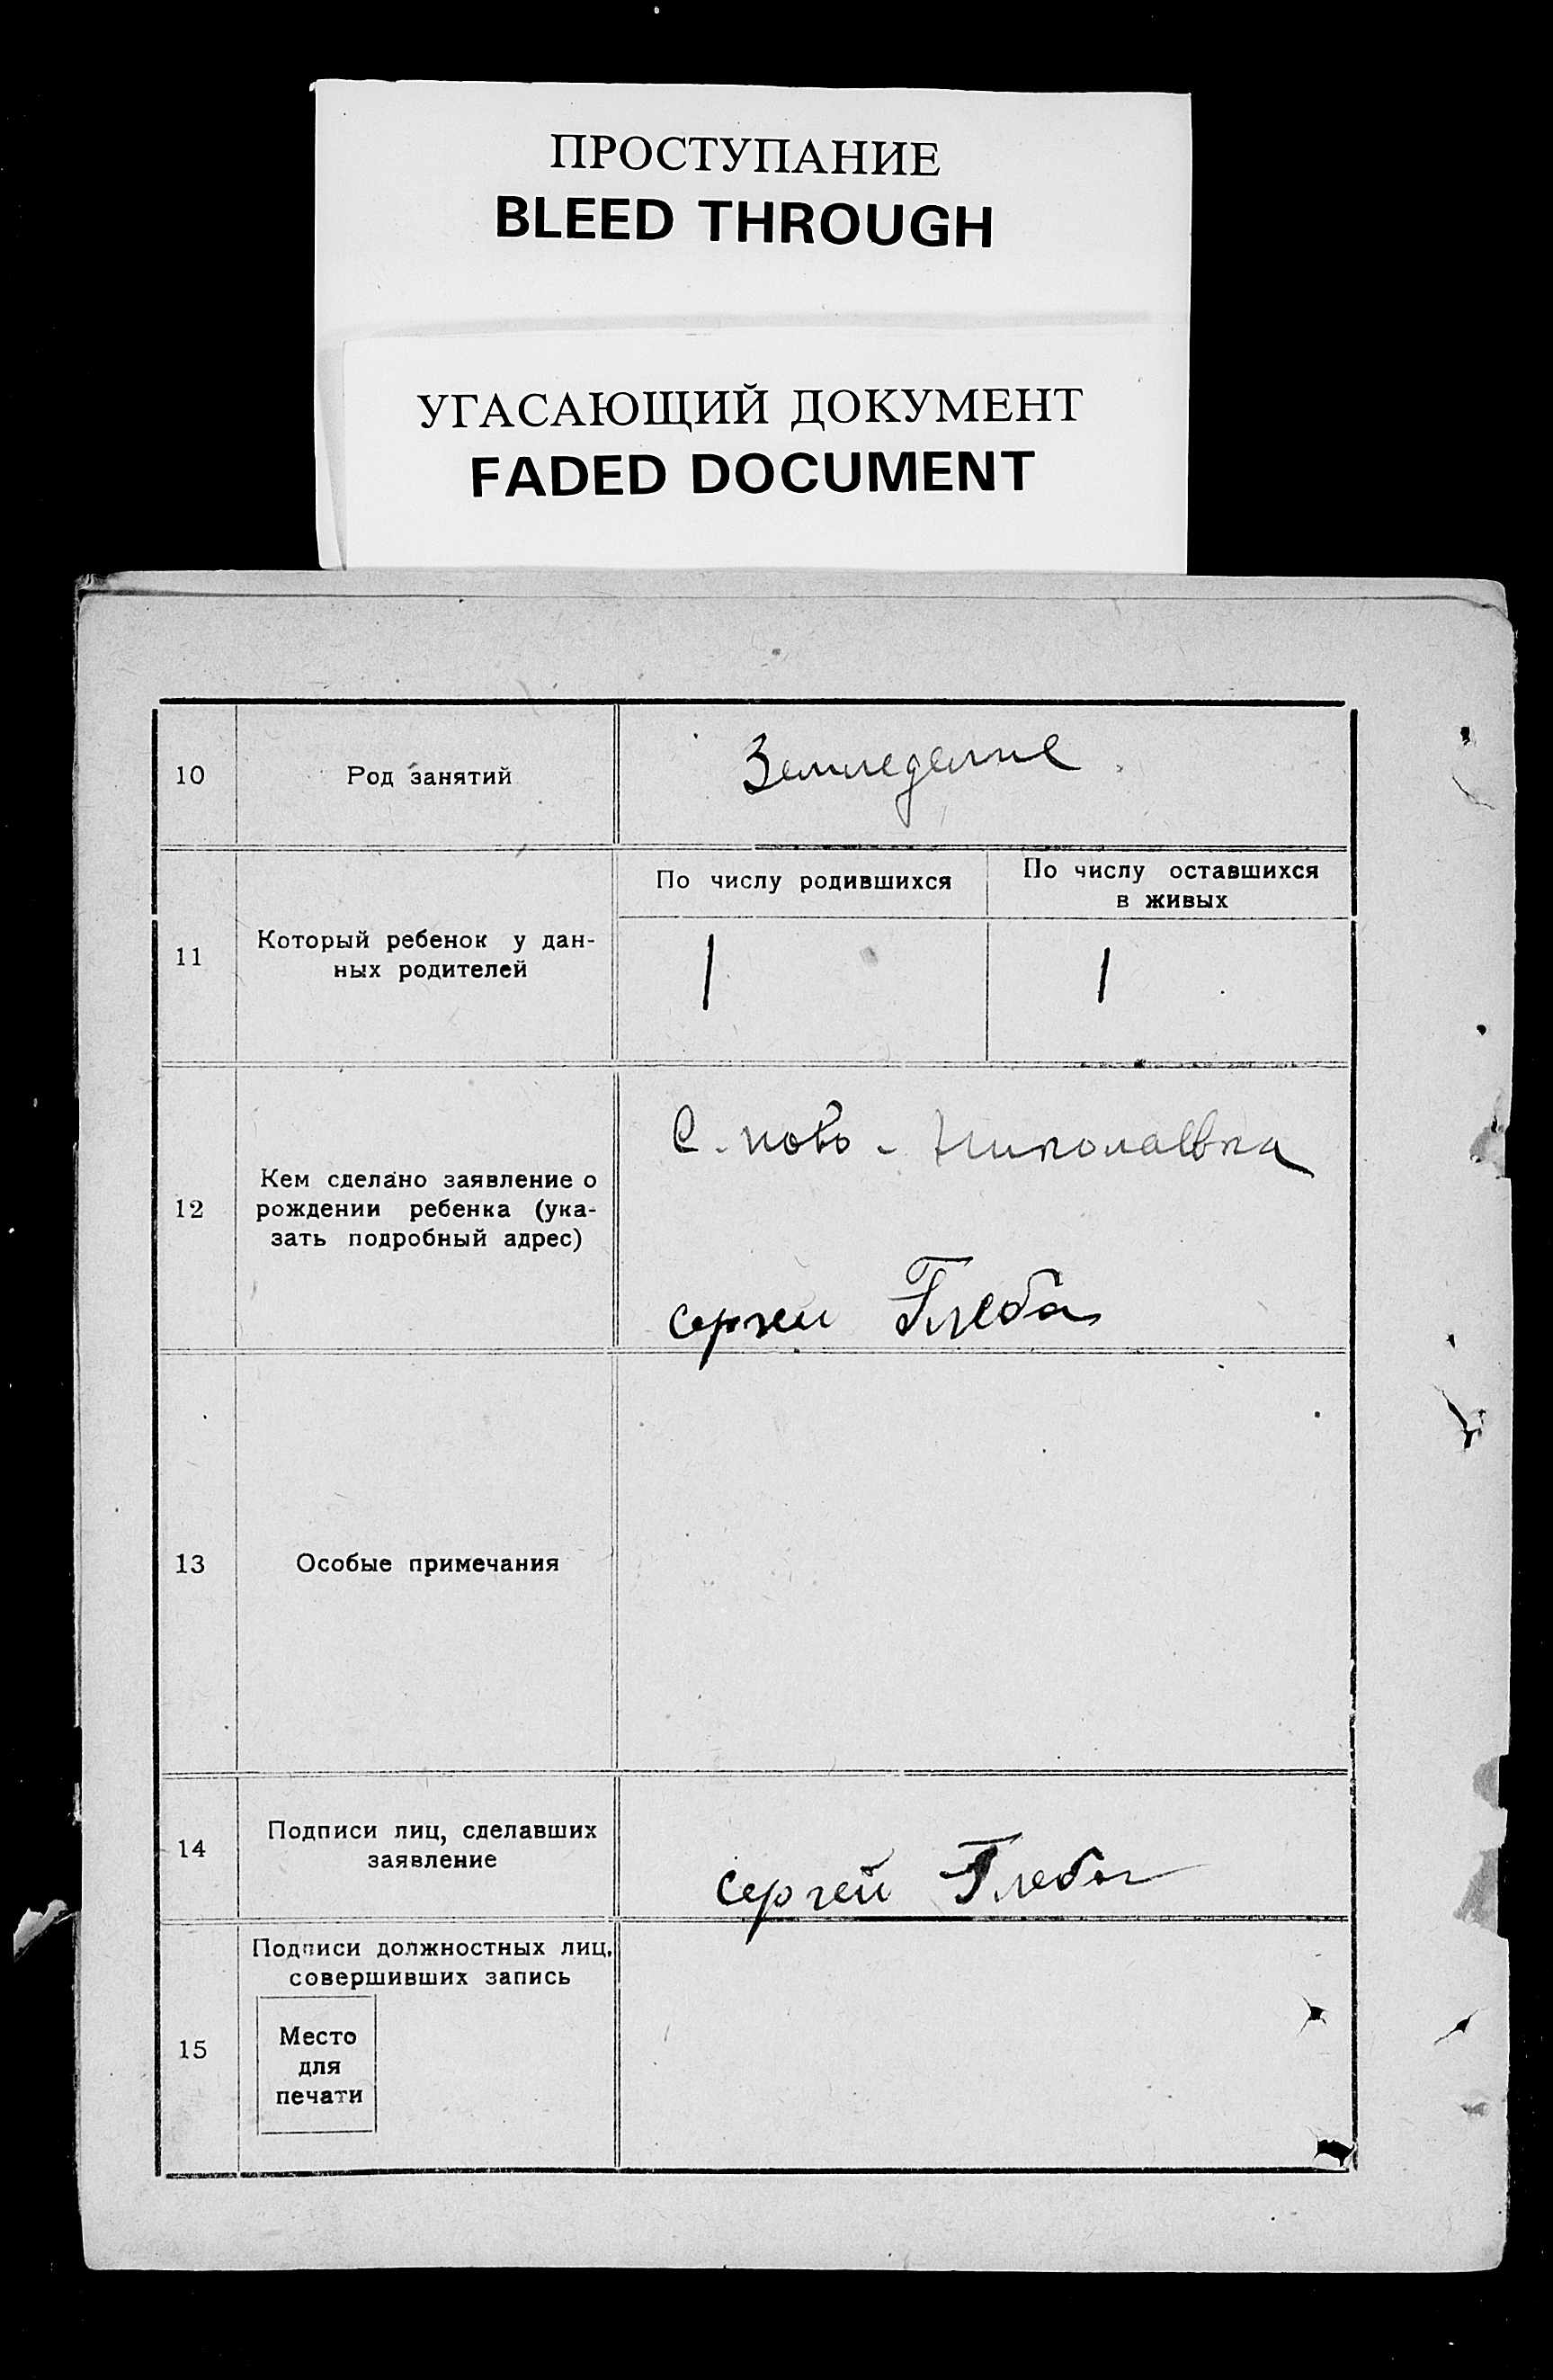 ПРОСТУПАНИЕ
BLEED THROUGH
УГАСАЮЩИЙ ДОКУМЕНТ
FADED DOCUMENT
10 Род занятий Земледелие
11 Который ребенок у дан-
ных родителей
По числу родившихся
По числу оставшихся
в живых
1 1
12 Кем сделано заявление о
рождении ребенка (ука-
зать подробный адрес)
С. ново - Николаевка
Сергей Глеба
13 Особые примечания
14 Подписи лиц, сделавших
заявление
Сергей Глеба
15 Подписи должностных лиц,
совершивших запись
Место
для
печати